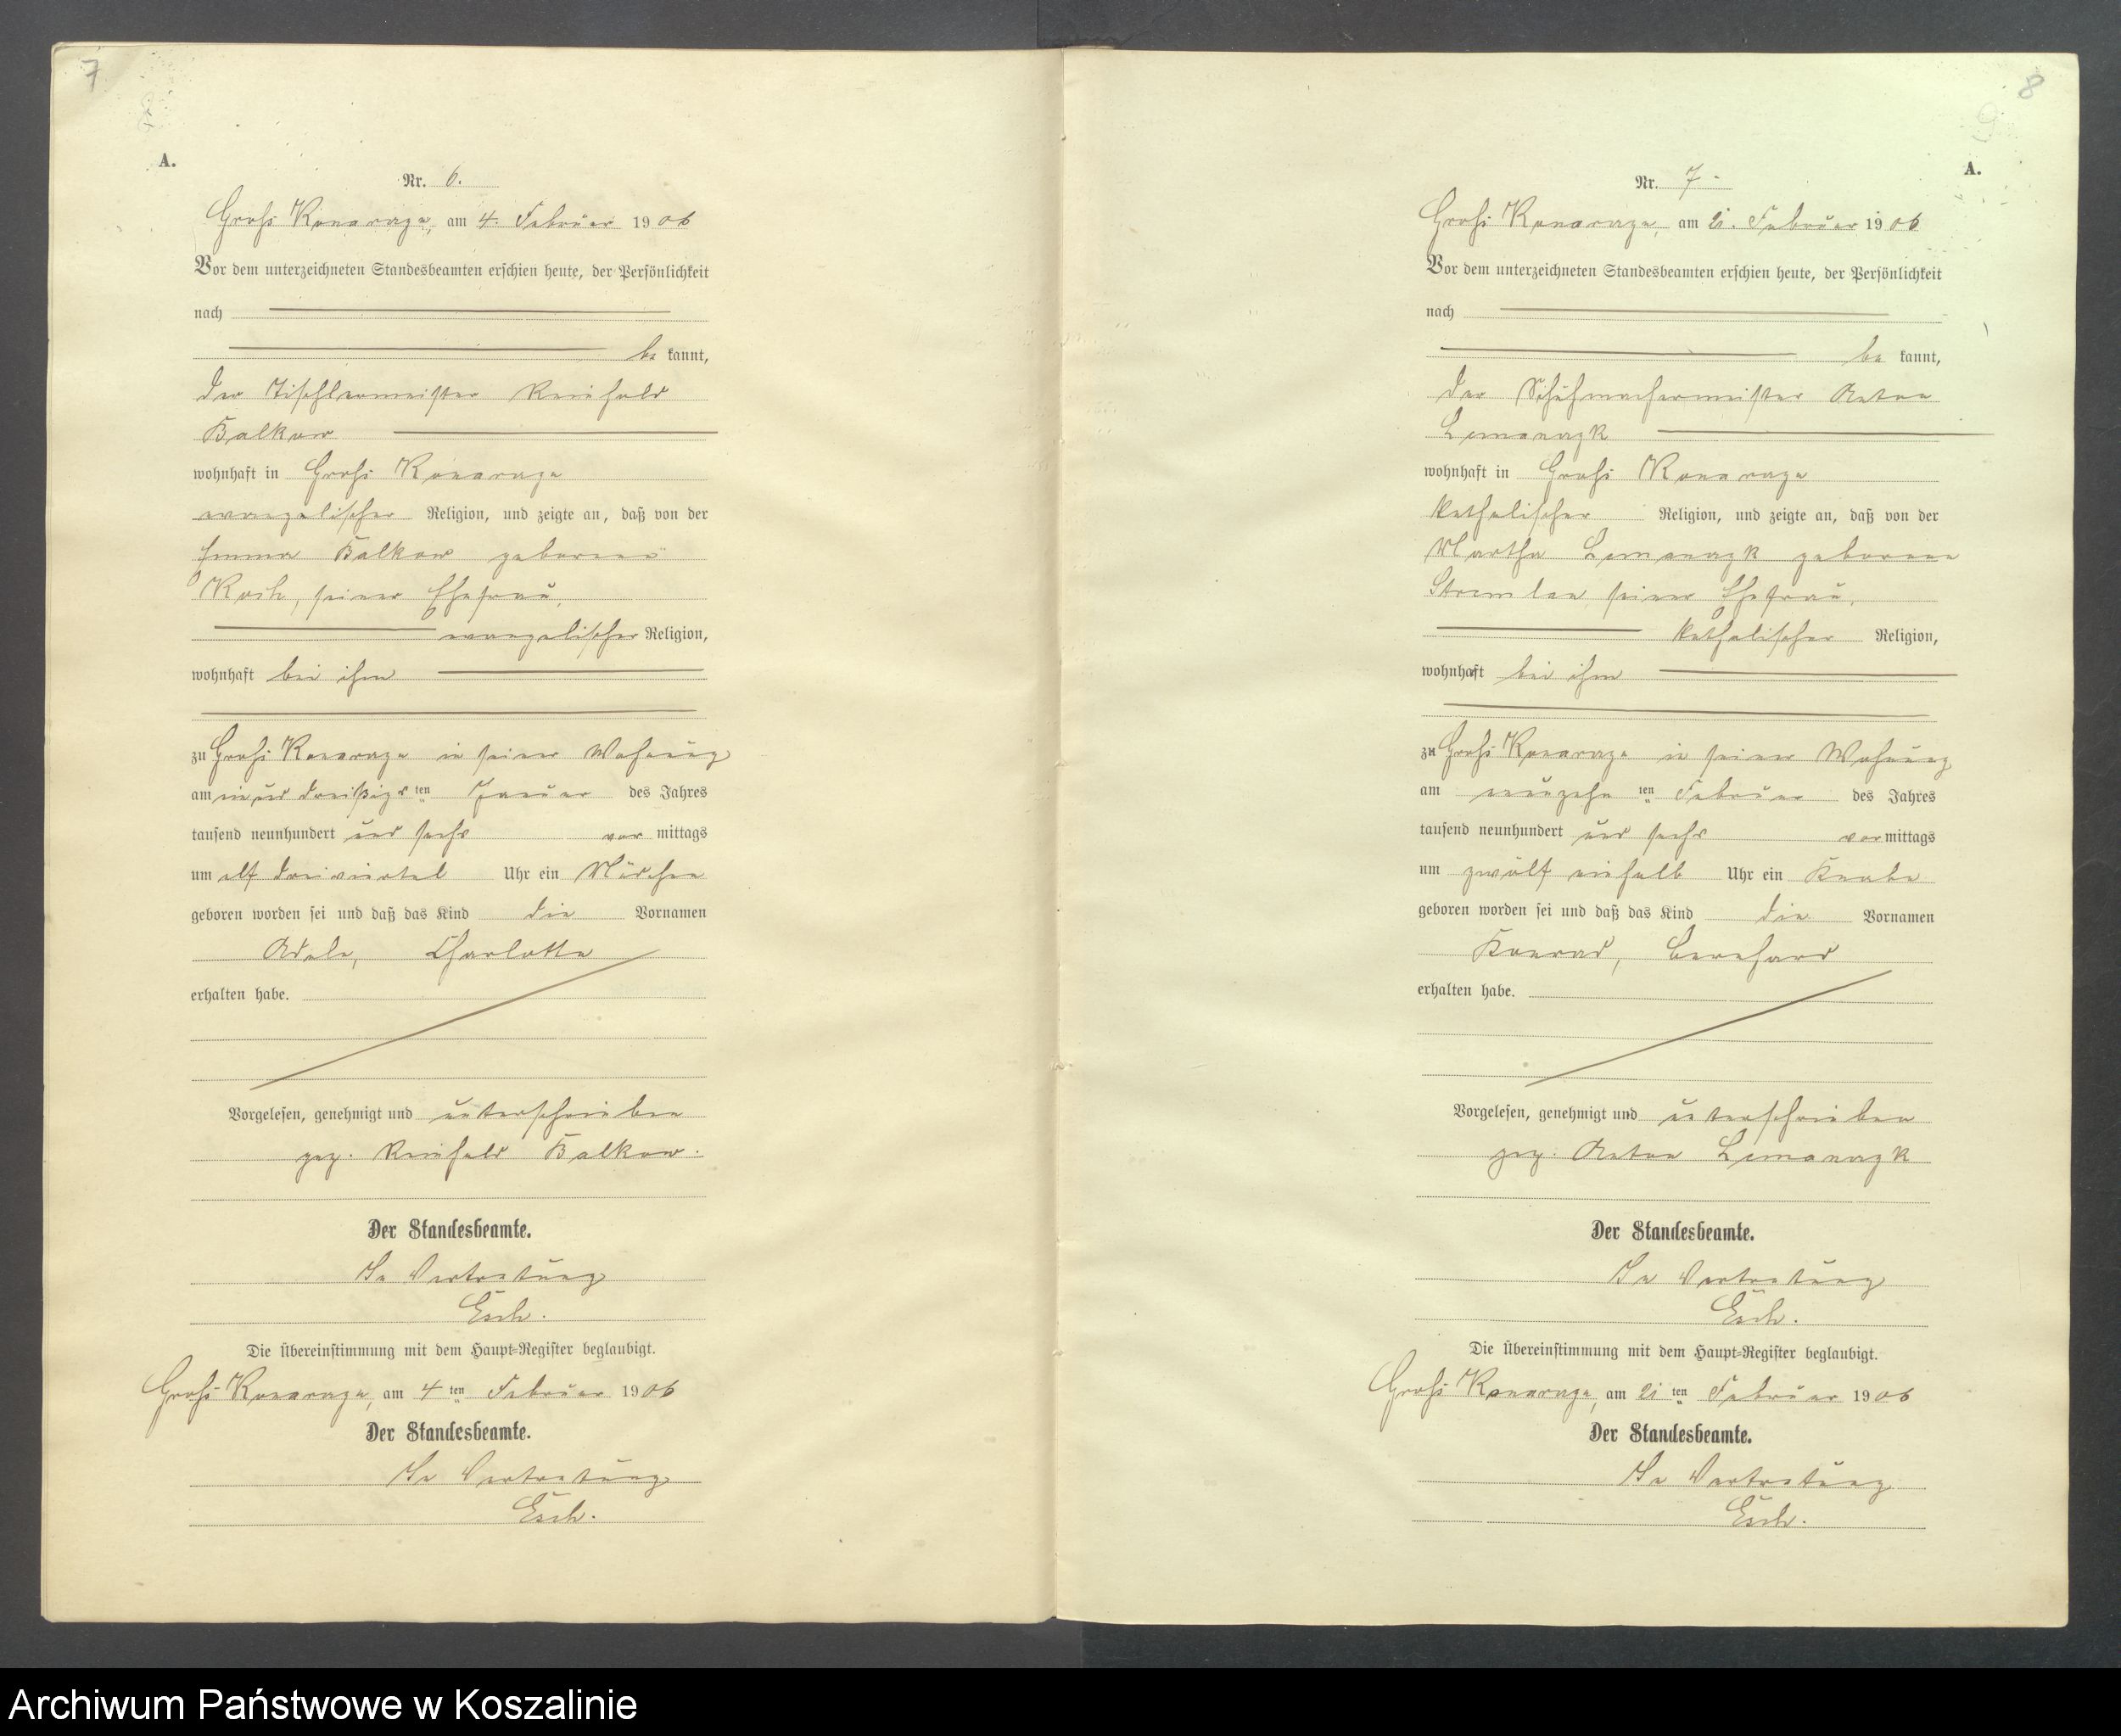 7
A.
Nr. 6.
Groß Konarzyn, am 4. Februar 1906
Vor dem unterzeichneten Standesbeamten erschien heute, der Persönlichkeit
nach
be kannt,
der Tischlermeister Reinhold
Balkow
wohnhaft in Groß Konarzyn
evangelischer Religion, und zeigte an, daß von der
Emma Balkow geborene
seiner Ehefrau,
evangelischer Religion,
wohnhaft bei ihm
zu Groß Konarzyn in seiner Wohnung
am ein und dreißigsten Januar des Jahres
tausend neunhundert und sechs vor mittags
um elf dreiviertel Uhr ein Mädchen
geboren worden sei und daß das Kind die Vornamen
Adele, Charlotte
erhalten habe.
Vorgelesen, genehmigt und unterschrieben
gez. Reinhold Balkow.
Der Standesbeamte.
In Vertretung
Esch.
Die Übereinstimmung mit dem Haupt-Register beglaubigt.
Groß Konarzyn, am 4 ten Februar 1906
Der Standesbeamte.
In Vertretung
Esch.
8
A.
Nr. 7.
Groß Konarzyn, am 21. Februar 1906
Vor dem unterzeichneten Standesbeamten erschien heute, der Persönlichkeit
nach
be kannt,
der Schuhmachermeister Anton
Lemanczyk
wohnhaft in Groß Konarzyn
katholischer Religion, und zeigte an, daß von der
Martha Lemanczyk geborene
seiner Ehefrau,
katholischer Religion,
wohnhaft bei ihm
zu Groß Konarzyn in seiner Wohnung
am neunzehn ten Februar des Jahres
tausend neunhundert und sechs vor mittags
um zwölf einhalb Uhr ein Knabe
geboren worden sei und daß das Kind die Vornamen
Konrad, Bernhard
erhalten habe.
Vorgelesen, genehmigt und unterschrieben
gez. Anton Lemanczyk
Der Standesbeamte.
In Vertretung
Esch.
Die Übereinstimmung mit dem Haupt-Register beglaubigt.
Groß Konarzyn, am 21 ten Februar 1906
Der Standesbeamte.
In Vertretung
Esch.
Archiwum Państwowe w Koszalinie